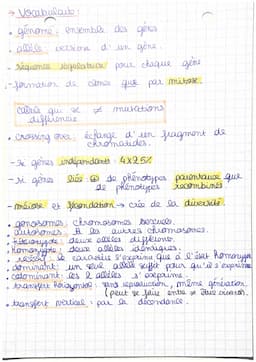 → Vocabulaire
• génome : ensemble des gènes
• allèle : version d'un gène.
- séquence régulatrice pour chaque gène
- formation de clones que par mitose.
Cellule qui se ≠ mutations
différencie
• crossing over : échange d'un fragment de
chromatides.
- si gènes indépendants : 4x25%
- si gènes liés ⊕ de phénotypes parentaux que
de phénotypes recombinés
- méiose et fécondation → crée de la diversité.
• gonosomes : chromosomes sexuels.
• autosomes : les autres chromosomes.
• hétérozygote : deux allèles différents.
• homozygote : deux allèles identiques.
• récessif : le caractère s'exprime que à l'état homozygote
• dominant : un seul allèle suffit pour qu'il s'exprime
• codominant : les 2 allèles s'exprime.
• transfert horizontal : sans reproduction, même génération.
(peut se faire entre ≠ êtres vivants).
• transfert vertical : par la descendance.